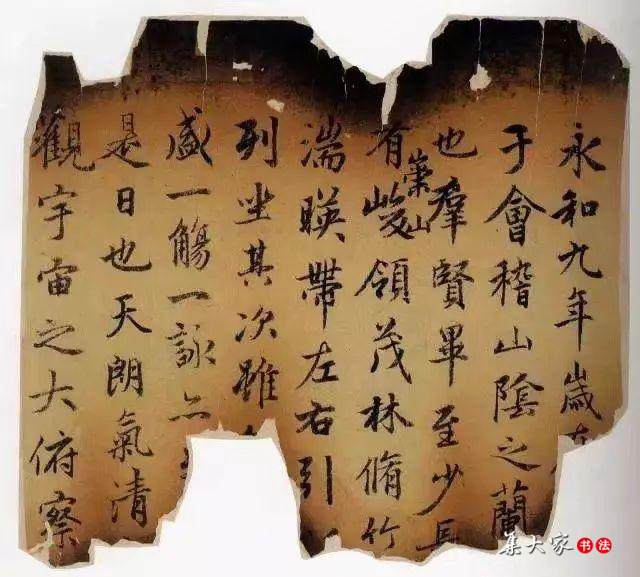 永和九年歲在
于會稽山陰之蘭
也羣賢畢至少長
有崇山峻領茂林脩竹
湍暎帶左右引
列坐其次雖
盛一觴一詠亦
是日也天朗氣清
觀宇宙之大俯察
集大家书法